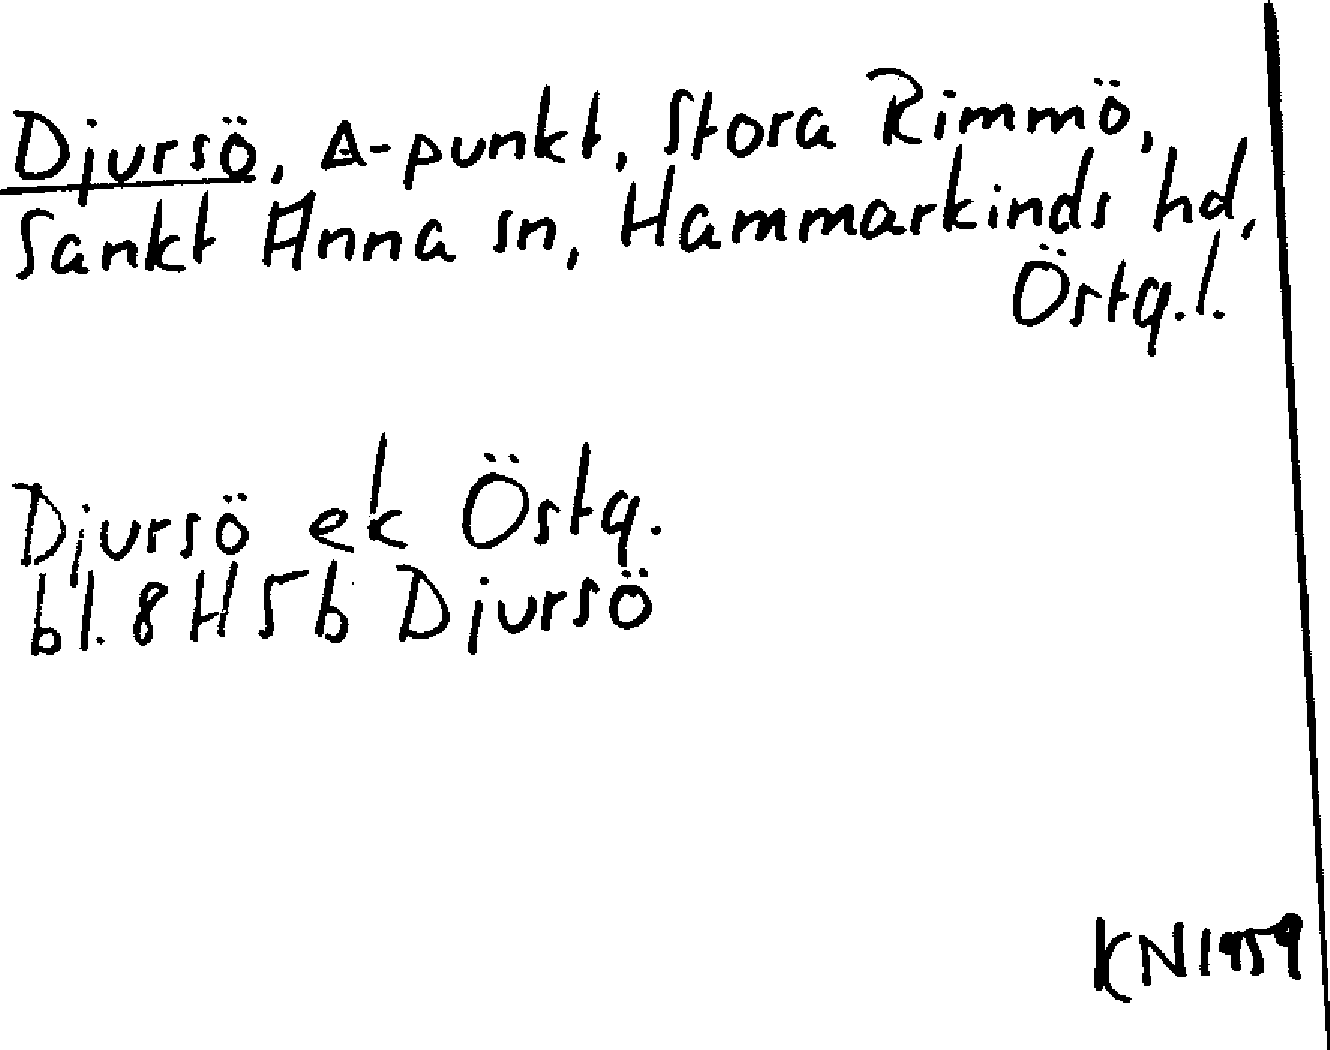 Djursö, ∆-punkt, Stora Rimmö,
Sankt Anna sn, Hammarkinds hd,
Östg.l.
Djursö ek Östg.
bl. 8H5b Djursö
KN1959